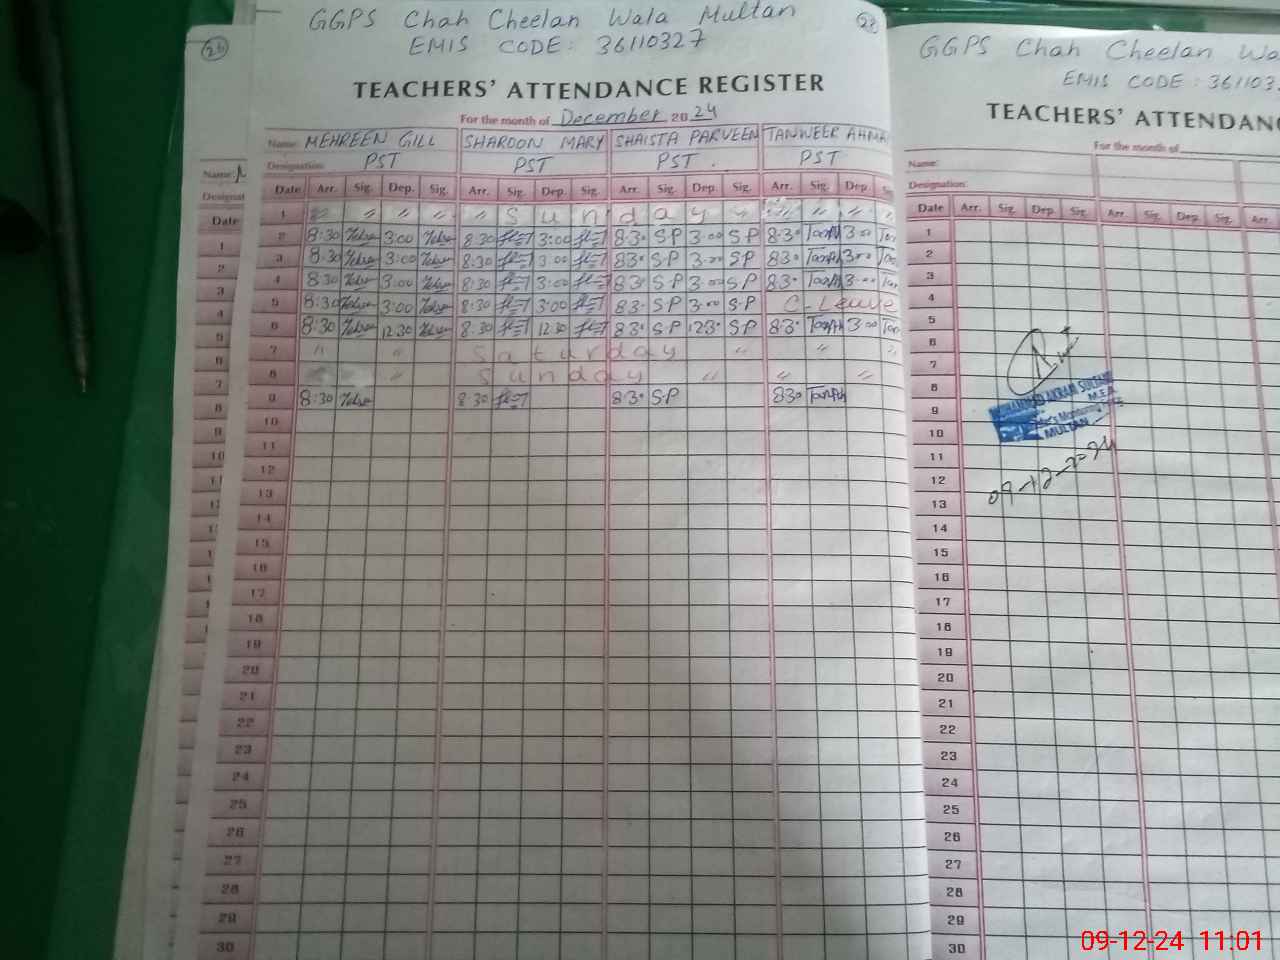 GGPS Chah Cheelan Wala Multan
EMIS CODE: 36110327
TEACHERS' ATTENDANCE REGISTER
For the month of December 2024
Name: MEHREEN GILL SHAROON MARY SHAISTA PARVEEN TANWEER AHMA
Designation: PST PST PST. PST
Date Arr. Sig. Dep. Sig. Arr. Sig. Dep. Sig. Arr. Sig. Dep. Sig. Arr. Sig. Dep.
1 " " " " " Sunday " " " "
2 8:30 3:00 8:30 3:00 8:30 SP 3:00 SP 8:30 3:00
3 8:30 3:00 8:30 3:00 8:30 SP 3:00 SP 8:30 3:00
4 8:30 3:00 8:30 3:00 8:30 SP 3:00 SP 8:30 3:00
5 8:30 3:00 8:30 3:00 8:30 SP 3:00 SP C-Leave
6 8:30 12:30 8:30 12:30 8:30 SP 12:30 SP 8:30 3:00
7 " " Saturday " " "
8 " Sunday " " "
9 8:30 8:30 8:30 SP 8:30
10
11
12
13
14
15
16
17
18
19
20
21
22
23
24
25
26
27
28
29
30
28
GGPS Chah Cheelan Wa
EMIS CODE: 361103
TEACHERS' ATTENDANC
For the month of
Name:
Designation:
Date Arr. Sig. Dep. Sig. Arr. Sig. Dep. Sig. Arr.
1
2
3
4
5
6
7
8
9
10
11
12
13
14
15
16
17
18
19
20
21
22
23
24
25
26
27
28
29
30
MUHAMMAD AKRAM SULTAN
M.E.A
MULTAN
09-12-2024
26
Name:
Designat
Date
1
2
3
4
5
6
7
8
9
10
09-12-24 11:01